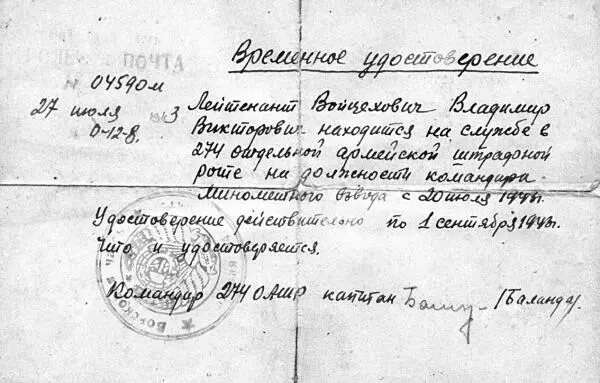 Временное удостоверение
ПОЧТА
04590м
27 июля 1943
0-12-8.
Лейтенант Войцехович Владимир
Викторович находится на службе в
274 отдельной армейской штрадоной
роте на должности командира
Минометного взвода с 20 июля 1943г.
Удостоверение действительно по 1 сентября 1943г.
Что и удостоверяется.
Командир 274 ОАШР капитан /Баланда/.